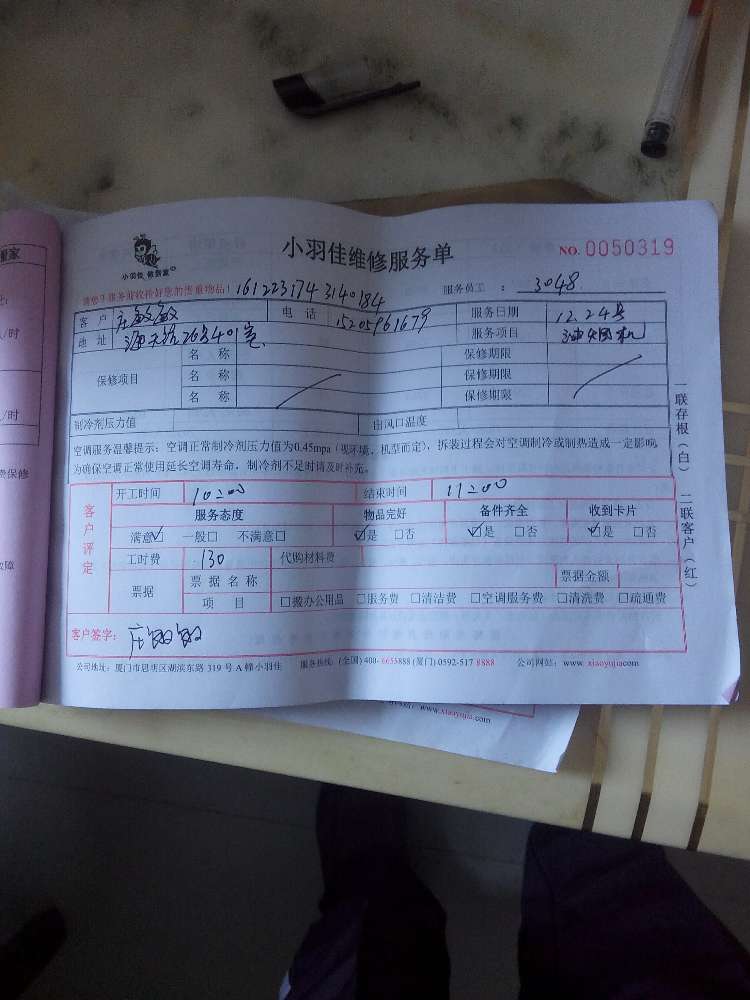 小羽佳维修服务单
NO. 0050319
小羽佳 做到家
请您于服务前收拾好您的贵重物品! 161223174 3140184 服务员工 : 3048
客户 庄敏敏 电话 15205961679 服务日期 12.24号
地址 海天路26号401室 服务项目 油烟机
保修项目 名称 保修期限
名称 保修期限
名称 保修期限
制冷剂压力值 出风口温度
空调服务温馨提示:空调正常制冷剂压力值为0.45mpa(视环境、机型而定),拆装过程会对空调制冷或制热造成一定影响,
为确保空调正常使用延长空调寿命,制冷剂不足时请及时补充。
客户评定 开工时间 10:00 结束时间 11:00
服务态度 物品完好 备件齐全 收到卡片
满意☑ 一般□ 不满意□ ☑是 □否 ☑是 □否 ☑是 □否
工时费 130 代购材料费
票据 票据名称 票据金额
项目 □搬办公用品 □服务费 □清洁费 □空调服务费 □清洗费 □疏通费
客户签字: 庄敏敏
公司地址:厦门市思明区湖滨东路 319 号 A 幢小羽佳 服务热线:(全国) 400-6655888 (厦门) 0592-517 8888 公司网站:www. xiaoyujia.com
一联存根(白) 二联客户(红)
www.xiaoyujia.com